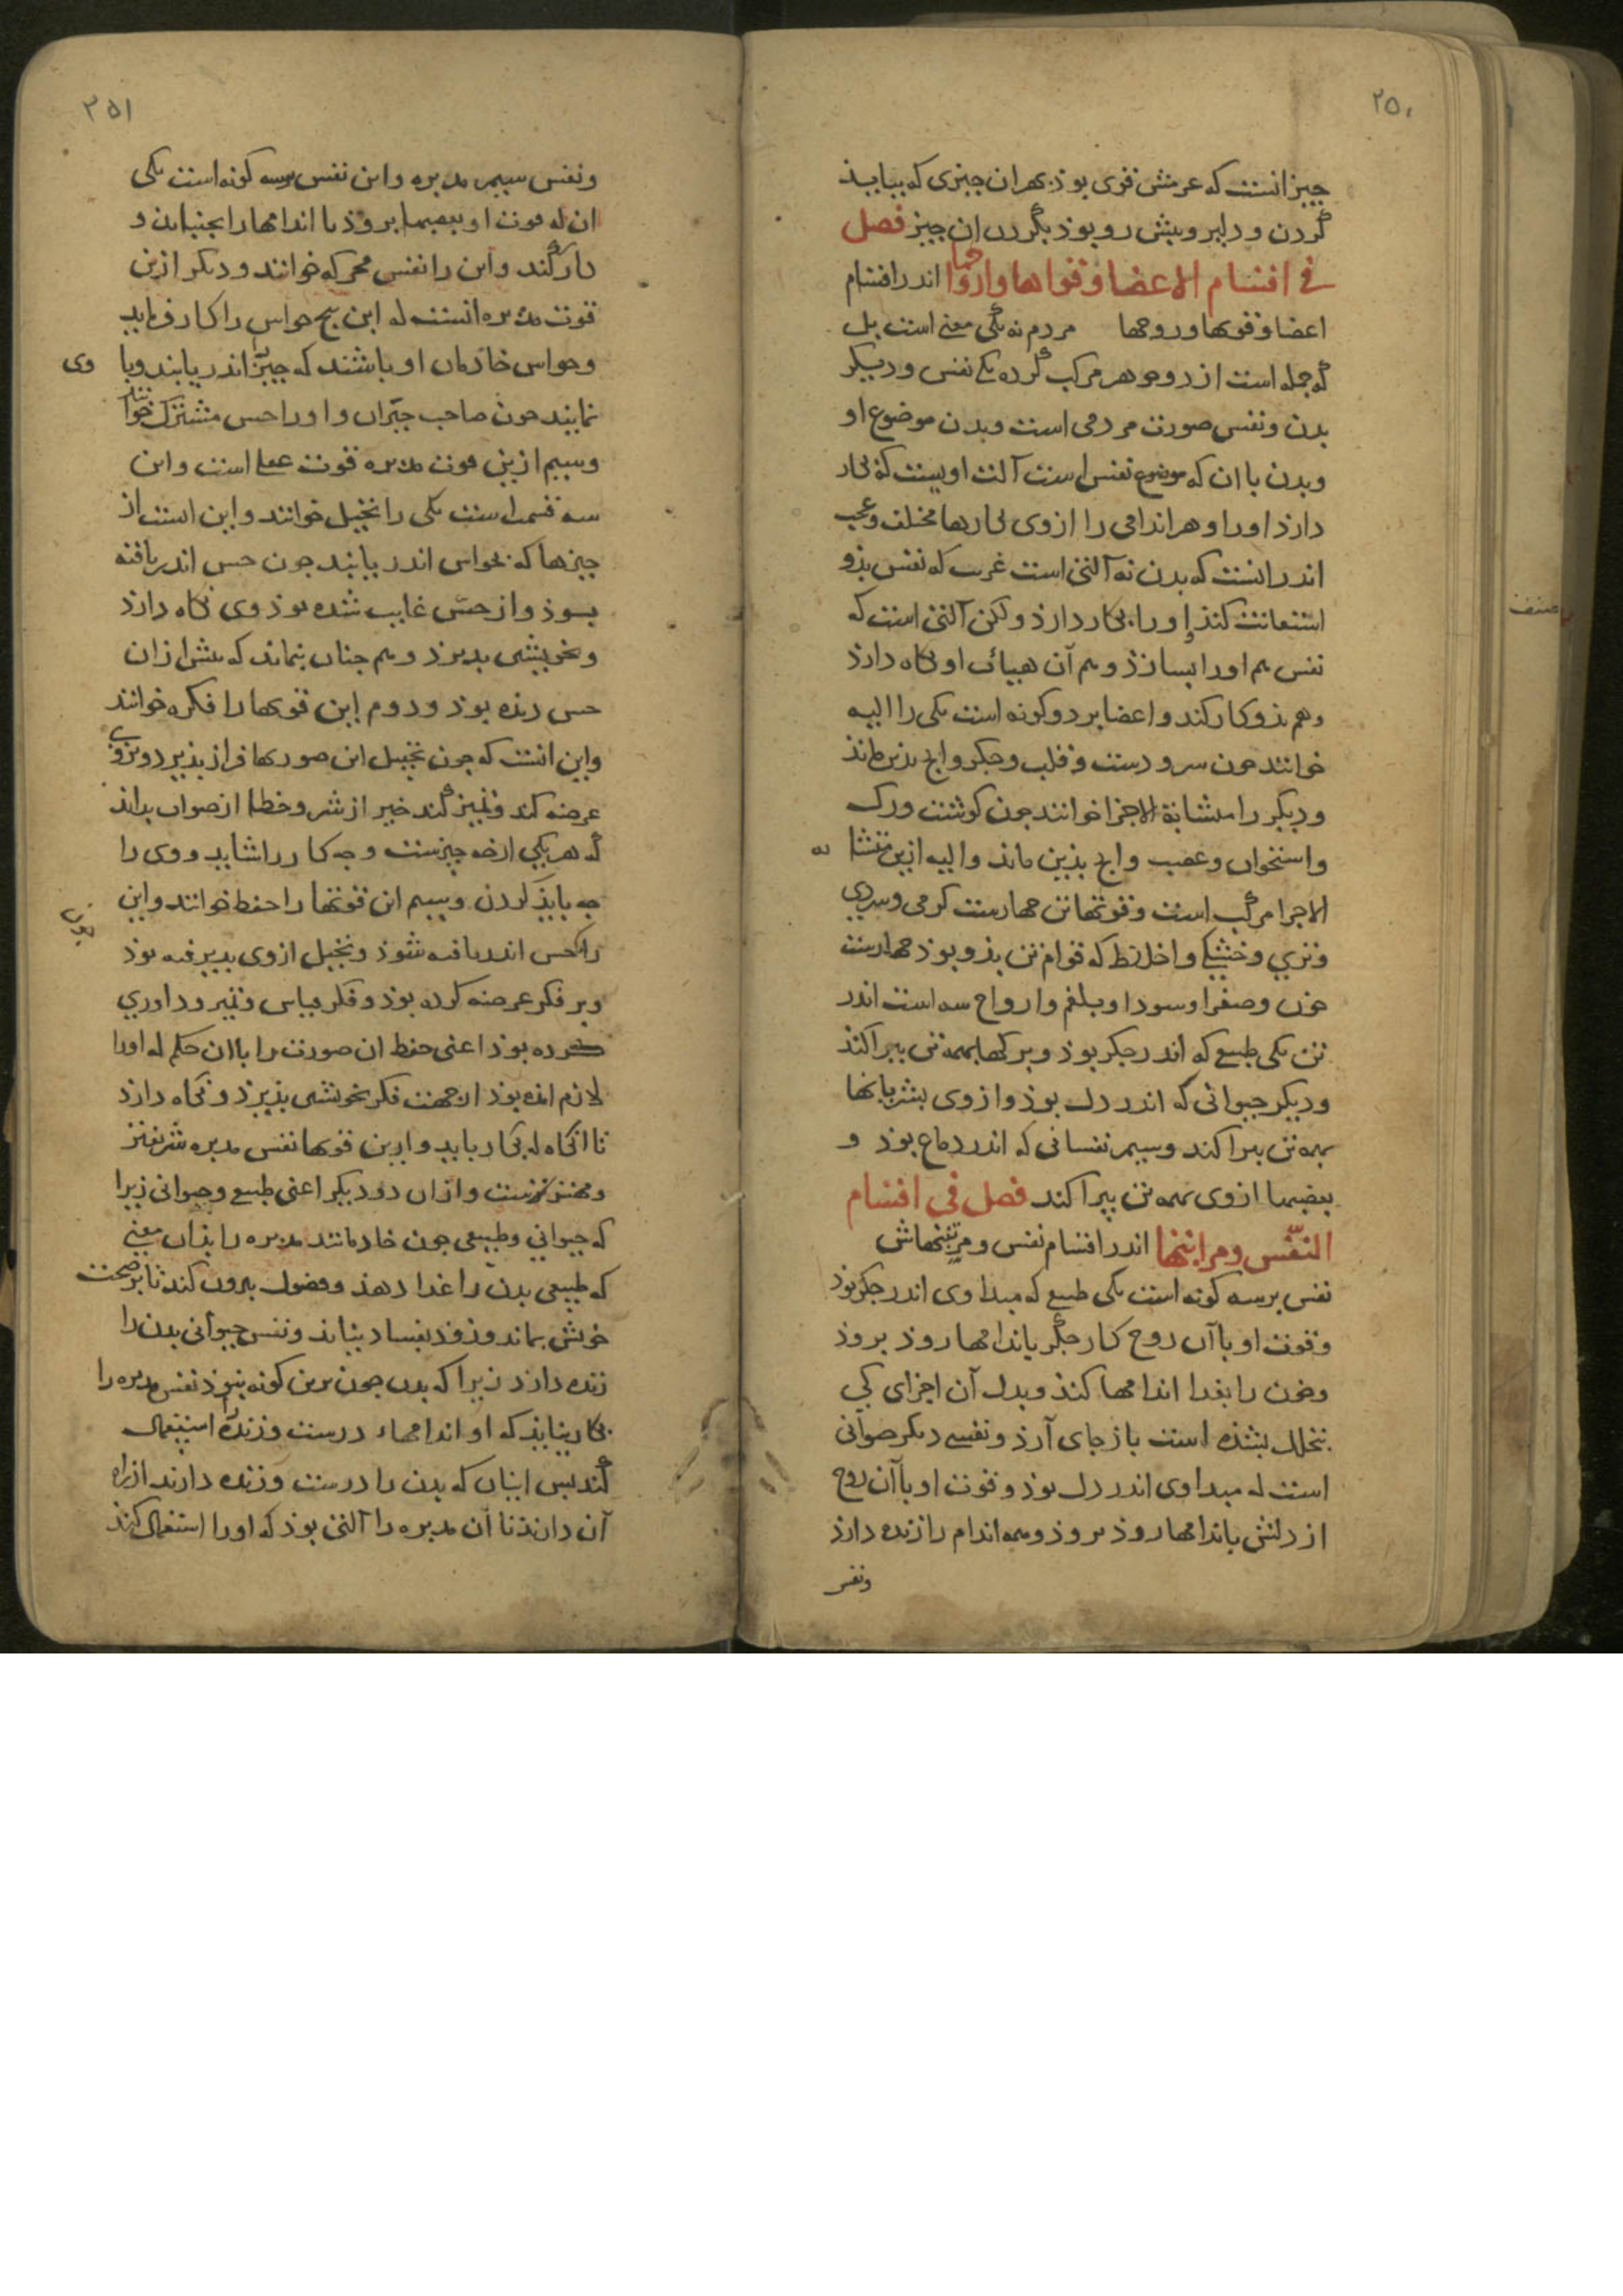 ۲۵۰
چیز انست که عرمش قوی بوذ بهر ان چیزی که بیایذ
کردن و دلیر و بیش رو بوذ بکردن ان چیز فصل
فی اقسام الاعضا و قواها و ارواحها اندر اقسام
اعضا و قوتها و روحها مردم نه یکی معنی است بل
که جمله است از دو جوهر مرکب کرده یکی نفس و دیکر
بدن و نفس صورت مردمی است و بدن موضوع او
و بدن با ان که موضوع نفس است آلت اویست که بکار
دارد او را و هر اندامی را از وی بکارها مختلف و عجب
اندر انست که بدن نه آلتی است غریب که نفس بذو
استعانت کند او را بکار دارد ولکن آلتی است که
نفس هم او را بسازذ و هم آن هیأت او نکاه دارذ
و هم بذو کار کند و اعضا بر دو کونه است یکی را الیه
خوانند چون سر و دست و قلب و جکر و انچ بذین ماند
و دیکر را متشابة الاجزا خوانند چون کوشت و رک
و استخوان و عصب و انچ بذین ماند و الیه ازین متشا به
الاجزا مرکب است و قوتها تن چهارست کرمی و سردی
و تری و خشکی و اخلاط که قوام تن بذو بوذ چهارست
خون و صفرا و سودا و بلغم و ارواح سه است اندر
تن یکی طبیعی که اندر جکر بوذ و برکها بهمه تن بپراکند
و دیکر حیوانی که اندر دل بوذ و از وی بشریانها
بهمه تن بپراکند و سیم نفسانی که اندر دماغ بوذ و
بعصبها از وی بهمه تن بپراکند فصل فی اقسام
النفس و مراتبها اندر اقسام نفس و مرتبتهاش
نفس بر سه کونه است یکی طبیعی که مبدا وی اندر جکر بوذ
و قوت او با آن روح کار جکر باندامها روذ بروذ
و خون را بغدا اندامها کند و بدل آن اجزای کی
بتحلل بشذه است باز جای آرذ و نفسی دیکر حیوانی
است که مبدا وی اندر دل بوذ و قوت او با آن روح
از دلش باندامها روذ بروذ و همه اندام را زنده دارذ
ونفس
۲۵۱
و نفس سیم مدبره و این نفس بر سه کونه است یکی
ان که قوت او بعصبها بروذ تا اندامها را بجنباند و
کار کند و این را نفس محرکه خوانند و دیکر ازین
قوت مدبره انست که این پنج حواس را کار فرماید
و حواس خاذمان او باشند که چیزها اندر یابند و با وی
نمایند چون صاحب خبران و او را حس مشترک خوانند
و سیم ازین قوت مدبره قوت عقل است و این
سه قسمت است یکی را تخیل خوانند و این است از
چیزها که بحواس اندر یابند چون حس اندر یافته
بوذ و از حس غایب شده بوذ وی نکاه دارذ
و بخویشی بپذیرذ و هم چنان بنماند که پیش از ان
حس دیده بوذ و دوم این قوتها را فکره خوانند
و این انست که چون تخیل این صورتها فراز پذیرد و بروی
عرضه کند و تمییز کند خیر از شر و خطا از صواب بداند
که هر یکی از چه چیزست و چه کار را شاید و وی را
چه بایذ کردن و سیم ازین قوتها را حفظ خوانند و این چون
را که حس اندر یافته شوذ و تخیل از وی پذیرفته بوذ
و بر فکر عرضه کرده بوذ و فکر قیاس و تمییز و داوری
کرده بوذ اعنی حفظ ان صورت را با ان حکم که او را
لازم امده بوذ از جهت فکر بخویشی بپذیرذ و نکاه دارذ
تا انکاه که بکار بایذ و ازین قوتها نفس مدبره شریفتر
و مهتر ترست و از ان دو دیکر اعنی طبیعی و حیوانی زیرا
که حیوانی و طبیعی چون خادمانند مدبره را بذان معنی
که طبیعی بدن را غدا دهذ و فضول بیرون کند تا بر صحت
خویش بماند و زوذ بفساد نیاید و نفس حیوانی بدن را
زنده دارد زیرا که بدن چون برین کونه نبوذ نفس مدبره را
بکار نیایذ که او اندامهاء درست و زنده را استعمال
کند پس اینان که بدن را درست و زنده دارند از براء
آن دارند تا آن مدبره را آلتی بوذ که او را استعمال کند